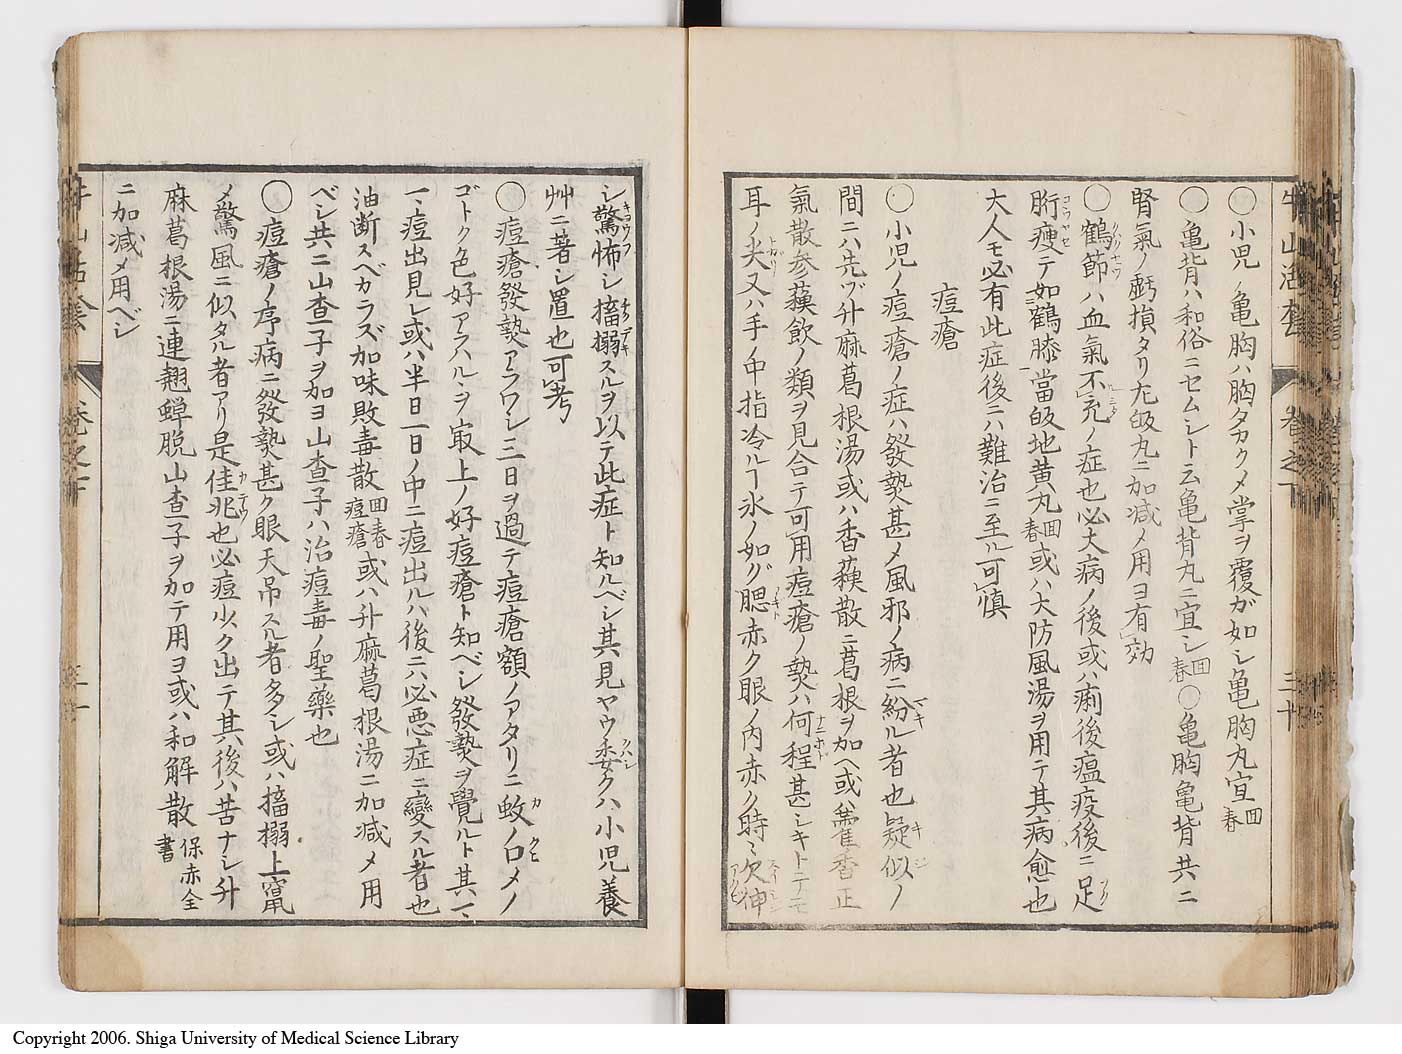 牛山活套 卷之下 三十
〇小児ノ亀胸ハ胸タカクメ掌ヲ覆ガ如シ亀胸丸宜回春
〇亀背ハ和俗ニセムシト云亀背丸ニ宜シ回春〇亀胸亀背共ニ
腎氣ノ虧損タリ九皈丸ニ加減メ用ヨ有効
〇鶴節ハ血氣不充ノ症也必大病ノ後或ハ痢後瘟疫後ニ足
胻瘦テ如鶴膝當皈地黄丸回春或ハ大防風湯ヲ用テ其病愈也
大人モ必有此症後ニハ難治ニ至ル可慎
痘瘡
〇小児ノ痘瘡ノ症ハ發熱甚メ風邪ノ病ニ紛ル者也疑似ノ
間ニハ先ヅ升麻葛根湯或ハ香蘓散ニ葛根ヲ加ヘ或ハ藿香正
氣散参蘓飲ノ類ヲ見合テ可用痘瘡ノ熱ハ何程甚シキトテモ
耳ノ尖又ハ手ノ中指冷ルヿ氷ノ如ク腮赤ク眼ノ内赤ク時〻欠伸
シ驚怖シ搐搦スルヲ以テ此症ト知ルベシ其見ヤウ委クハ小児養
艸ニ著シ置也可考
〇痘瘡發熱アラワレ三日ヲ過テ痘瘡額ノアタリニ蚊ノ口メノ
ゴトク色好アラハルヽヲ㝡上ノ好痘瘡ト知ベシ發熱ヲ覺ルト其一〻
一〻痘出見レ或ハ半日一日ノ中ニ痘出ルハ後ニハ必悪症ニ變スル者也
油断スベカラズ加味敗毒散回春痘瘡或ハ升麻葛根湯ニ加減メ用
ベシ共ニ山査子ヲ加ヨ山査子ハ治痘毒ノ聖藥也
〇痘瘡ノ序病ニ發熱甚ク眼天吊スル者多シ或ハ搐搦上竄
メ驚風ニ似タル者アリ是佳兆也必痘少ク出テ其後ハ苦ナシ升
麻葛根湯ニ連翹蝉脱山査子ヲ加テ用ヨ或ハ和解散保赤全書
ニ加減メ用ベシ
Copyright 2006. Shiga University of Medical Science Library